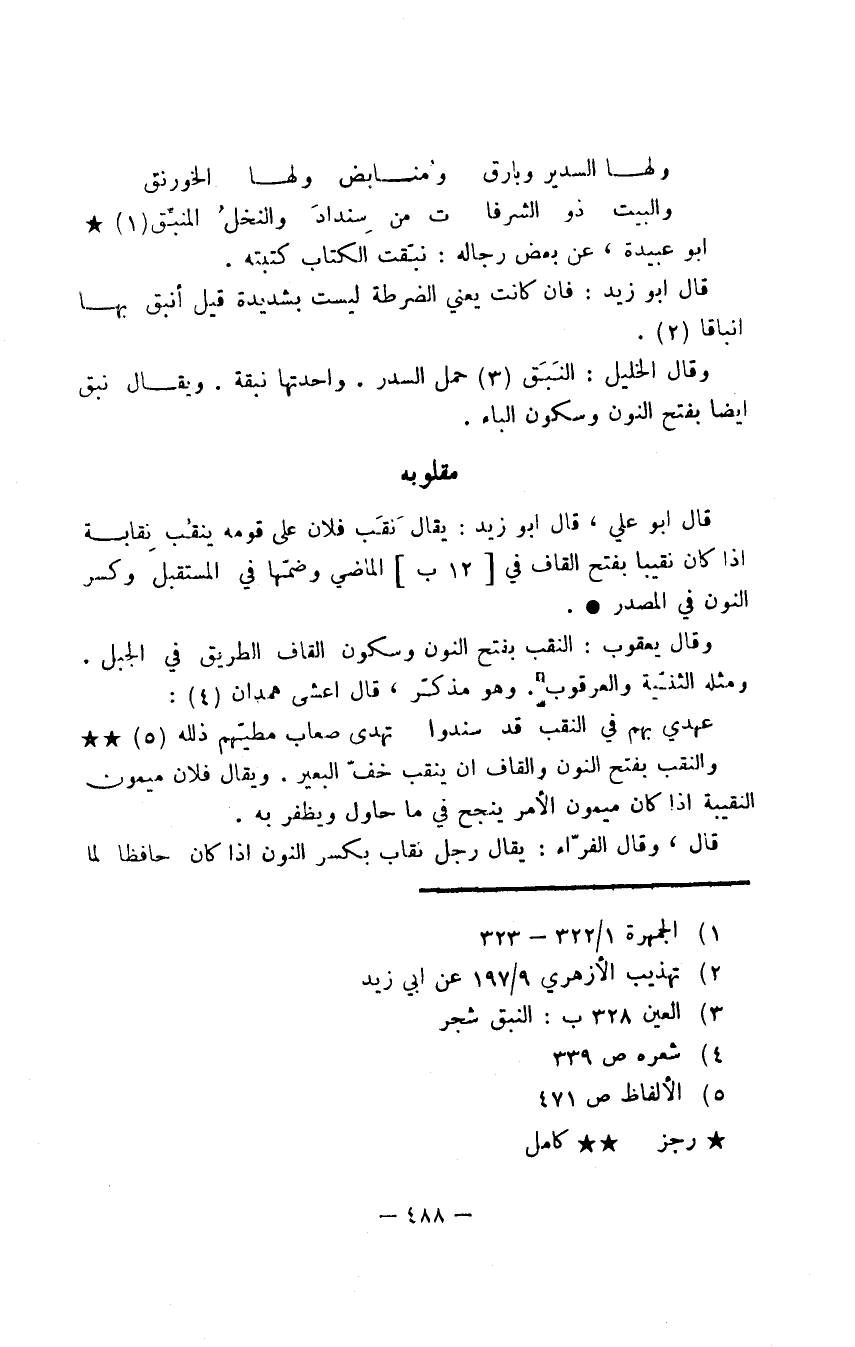 ولهـــا السدير وبارق ومنـــابض ولهـــا الخورنق
والبيت ذو الشرفا ت من سِندادَ والنخلُ المنبّق(١) ★
ابو عبيدة ، عن بعض رجاله : نبّقت الكتاب كتبته .
قال ابو زيد : فان كانت يعني الضرطة ليست بشديدة قيل أنبق بهـــا
انباقا (٢) .
وقال الخليل : النَبَق (٣) حمل السدر . واحدتها نبقة . ويقـــال نبق
ايضا بفتح النون وسكون الباء .
مقلوبه
قال ابو علي ، قال ابو زيد : يقال نَقَب فلان على قومه ينقُب نِقابـــة
اذا كان نقيبا بفتح القاف في [ ١٢ ب ] الماضي وضمّها في المستقبل وكسر
النون في المصدر ● .
وقال يعقوب : النقب بفتح النون وسكون القاف الطريق في الجبل .
ومثله الثنيّة والعرقوب . وهو مذكّر ، قال اعشى همدان (٤) :
عهدي بهم في النقب قد سندوا تهدى صعاب مطيّهم ذلله (٥) ★★
والنقب بفتح النون والقاف ان ينقب خفّ البعير . ويقال فلان ميمون
النقيبة اذا كان ميمون الأمر ينجح في ما حاول ويظفر به .
قال ، وقال الفرّاء : يقال رجل نقاب بكسر النون اذا كان حافظا لما
١) الجمهرة ٣٢٢/١ – ٣٢٣
٢) تهذيب الأزهري ١٩٧/٩ عن ابي زيد
٣) العين ٣٢٨ ب : النبق شجر
٤) شعره ص ٣٣٩
٥) الألفاظ ص ٤٧١
★ رجز ★★ كامل
– ٤٨٨ –